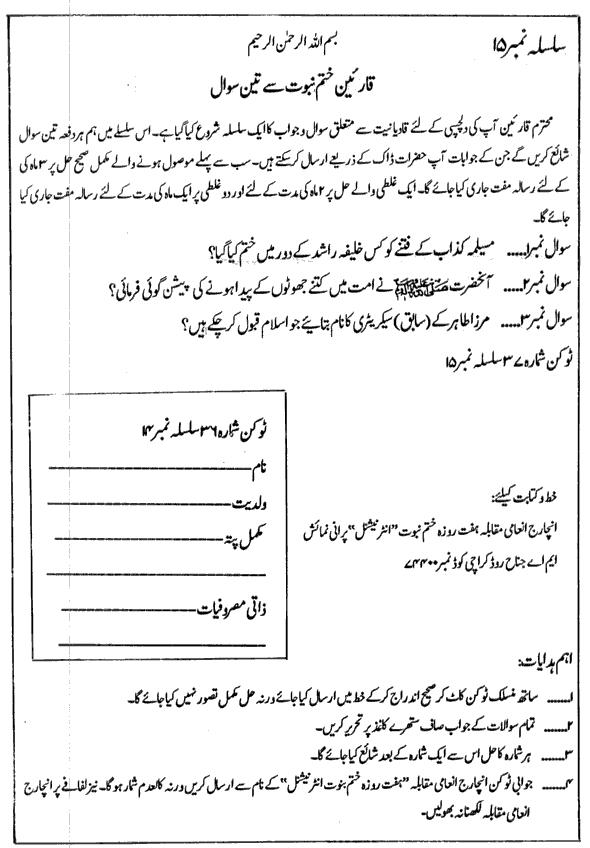 سلسلہ نمبر ۱۵
بسم اللہ الرحمٰن الرحیم
قارئین ختم نبوت سے تین سوال
محترم قارئین آپ کی دلچسپی کے لئے قادیانیت سے متعلق سوال و جواب کا ایک سلسلہ شروع کیا گیا ہے۔ اس سلسلے میں ہم ہر دفعہ تین سوال
شائع کریں گے جن کے جوابات آپ حضرات ڈاک کے ذریعے ارسال کرسکتے ہیں۔ سب سے پہلے موصول ہونے والے مکمل صحیح حل پر ۳ ماہ کی
کے لئے رسالہ مفت جاری کیا جائے گا۔ ایک غلطی والے حل پر ۲ ماہ کی مدت کے لئے اور دو غلطی پر ایک ماہ کی مدت کے لئے رسالہ مفت جاری کیا
جائے گا۔
سوال نمبر۱..... مسیلمہ کذاب کے فتنے کو کس خلیفہ راشد کے دور میں ختم کیا گیا؟
سوال نمبر۲..... آنحضرت ﷺ نے امت میں کتنے جھوٹوں کے پیدا ہونے کی پیشن گوئی فرمائی؟
سوال نمبر۳..... مرزا طاہر کے (سابق) سیکریٹری کا نام بتائیے جو اسلام قبول کرچکے ہیں؟
ٹوکن شمارہ ۳۷ سلسلہ نمبر ۱۵
ٹوکن شمارہ ۳۶ سلسلہ نمبر ۱۴
نام
ولدیت
مکمل پتہ
ذاتی مصروفیات
خط و کتابت کیلئے:
انچارج انعامی مقابلہ ہفت روزہ ختم نبوت "انٹرنیشنل" پرانی نمائش
ایم اے جناح روڈ کراچی کوڈ نمبر ۷۴۴۰۰
اہم ہدایات:
۱..... ساتھ منسلک ٹوکن کاٹ کر صحیح اندراج کرکے خط میں ارسال کیا جائے ورنہ حل مکمل تصور نہیں کیا جائے گا۔
۲..... تمام سوالات کے جواب صاف ستھرے کاغذ پر تحریر کریں۔
۳..... ہر شمارہ کا حل اس سے ایک شمارہ کے بعد شائع کیا جائے گا۔
۴..... جوابی ٹوکن انچارج انعامی مقابلہ "ہفت روزہ ختم نبوت انٹرنیشنل" کے نام سے ارسال کریں ورنہ کالعدم شمار ہوگا۔ نیز لفافے پر انچارج
انعامی مقابلہ لکھنا نہ بھولیں۔